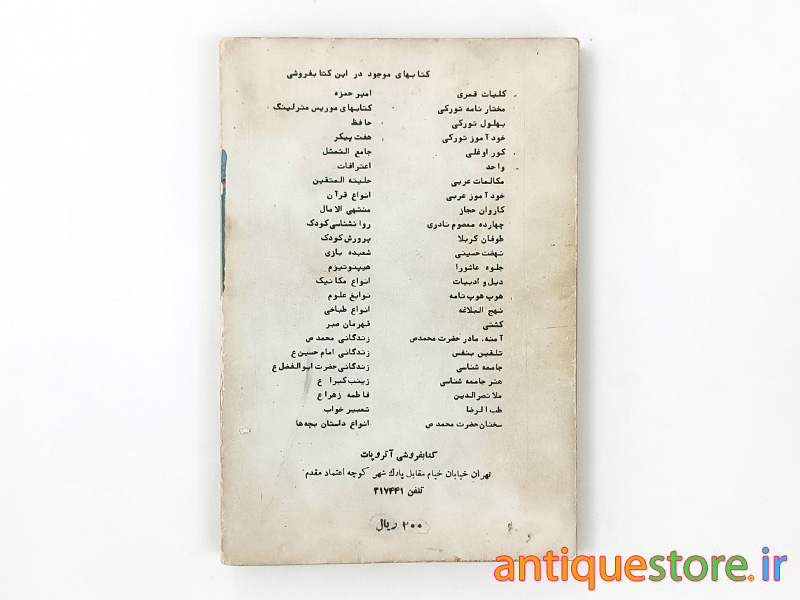 کتابهای موجود در این کتابفروشی
کلیات قمری امیر حمزه
مختار نامه تورکی کتابهای موریس مترلینگ
بهلول تورکی حافظ
خودآموز تورکی هفت پیکر
کور اوغلی جامع التمثل
واحد اعترافات
مکالمات عربی حلیته المتقین
خودآموز عربی انواع قرآن
کاروان حجاز منتهی الامال
چهارده معصوم نادری روانشناسی کودک
طوفان کربلا پرورش کودک
نهضت حسینی شعبده بازی
جلوه عاشورا هیپنوتیزم
دیل و ادبیات انواع مکانیک
هوپ هوپ نامه نوابغ علوم
نهج البلاغه انواع طباخی
کشتی قهرمان صبر
آمنه، مادر حضرت محمدص زندگانی محمد ص
تلقین بنفس زندگانی امام حسین ع
جامعه شناسی زندگانی حضرت ابوالفضل ع
هنر جامعه شناسی زینب کبرا ع
ملانصرالدین فاطمه زهرا ع
طب الرضا تعبیر خواب
سخنان حضرت محمد ص انواع داستان بچه‌ها
کتابفروشی آتروپات
تهران خیابان خیام مقابل پارک شهر کوچه اعتماد مقدم
تلفن ۳۱۷۴۴۱
۲۰۰ ریال
antiquestore.ir